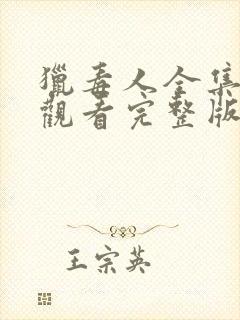 獵毒人全集
觀看完整版
王宗英